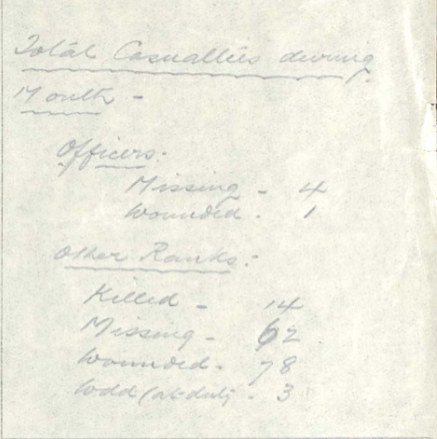 Total Casualties during
Month -
Officers:
Missing - 4
Wounded - 1
Other Ranks:
Killed - 14
Missing - 62
Wounded - 78
Wdd (at duty - 3